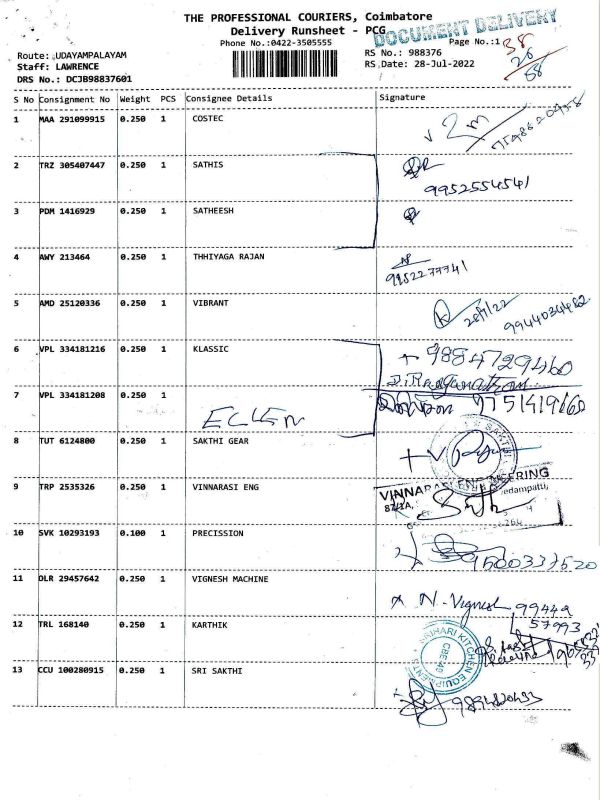 THE PROFESSIONAL COURIERS, Coimbatore
Delivery Runsheet - PCG
DOCUMENT DELIVERY
Phone No.:0422-3505555
Page No.:1
38
20
58
Route: UDAYAMPALAYAM
RS No.: 988376
Staff: LAWRENCE
RS Date: 28-Jul-2022
DRS No.: DCJB98837601
S No Consignment No Weight PCS Consignee Details Signature
1 MAA 291099915 0.250 1 COSTEC
2 TRZ 305407447 0.250 1 SATHIS
9952554541
3 PDM 1416929 0.250 1 SATHEESH
4 AWY 213464 0.250 1 THHIYAGA RAJAN
9952277741
5 AMD 25120336 0.250 1 VIBRANT
28/7/22
9944034482
6 VPL 334181216 0.250 1 KLASSIC
9884729460
7 VPL 334181208 0.250 1
9751419160
8 TUT 6124800 0.250 1 SAKTHI GEAR
9 TRP 2535326 0.250 1 VINNARASI ENG
VINNARASI ENGINEERING
87/1A,
10 SVK 10293193 0.100 1 PRECISSION
9500337520
11 DLR 29457642 0.250 1 VIGNESH MACHINE
N. Vignesh 99442
57993
12 TRL 168140 0.250 1 KARTHIK
SRIHARI KITCHEN EQUIPMENTS
CBE-49
13 CCU 100280915 0.250 1 SRI SAKTHI